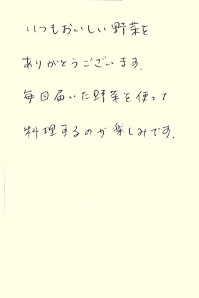 いつもおいしい野菜を
ありがとうございます.
毎回届いた野菜を使って
料理するのが楽しみです.